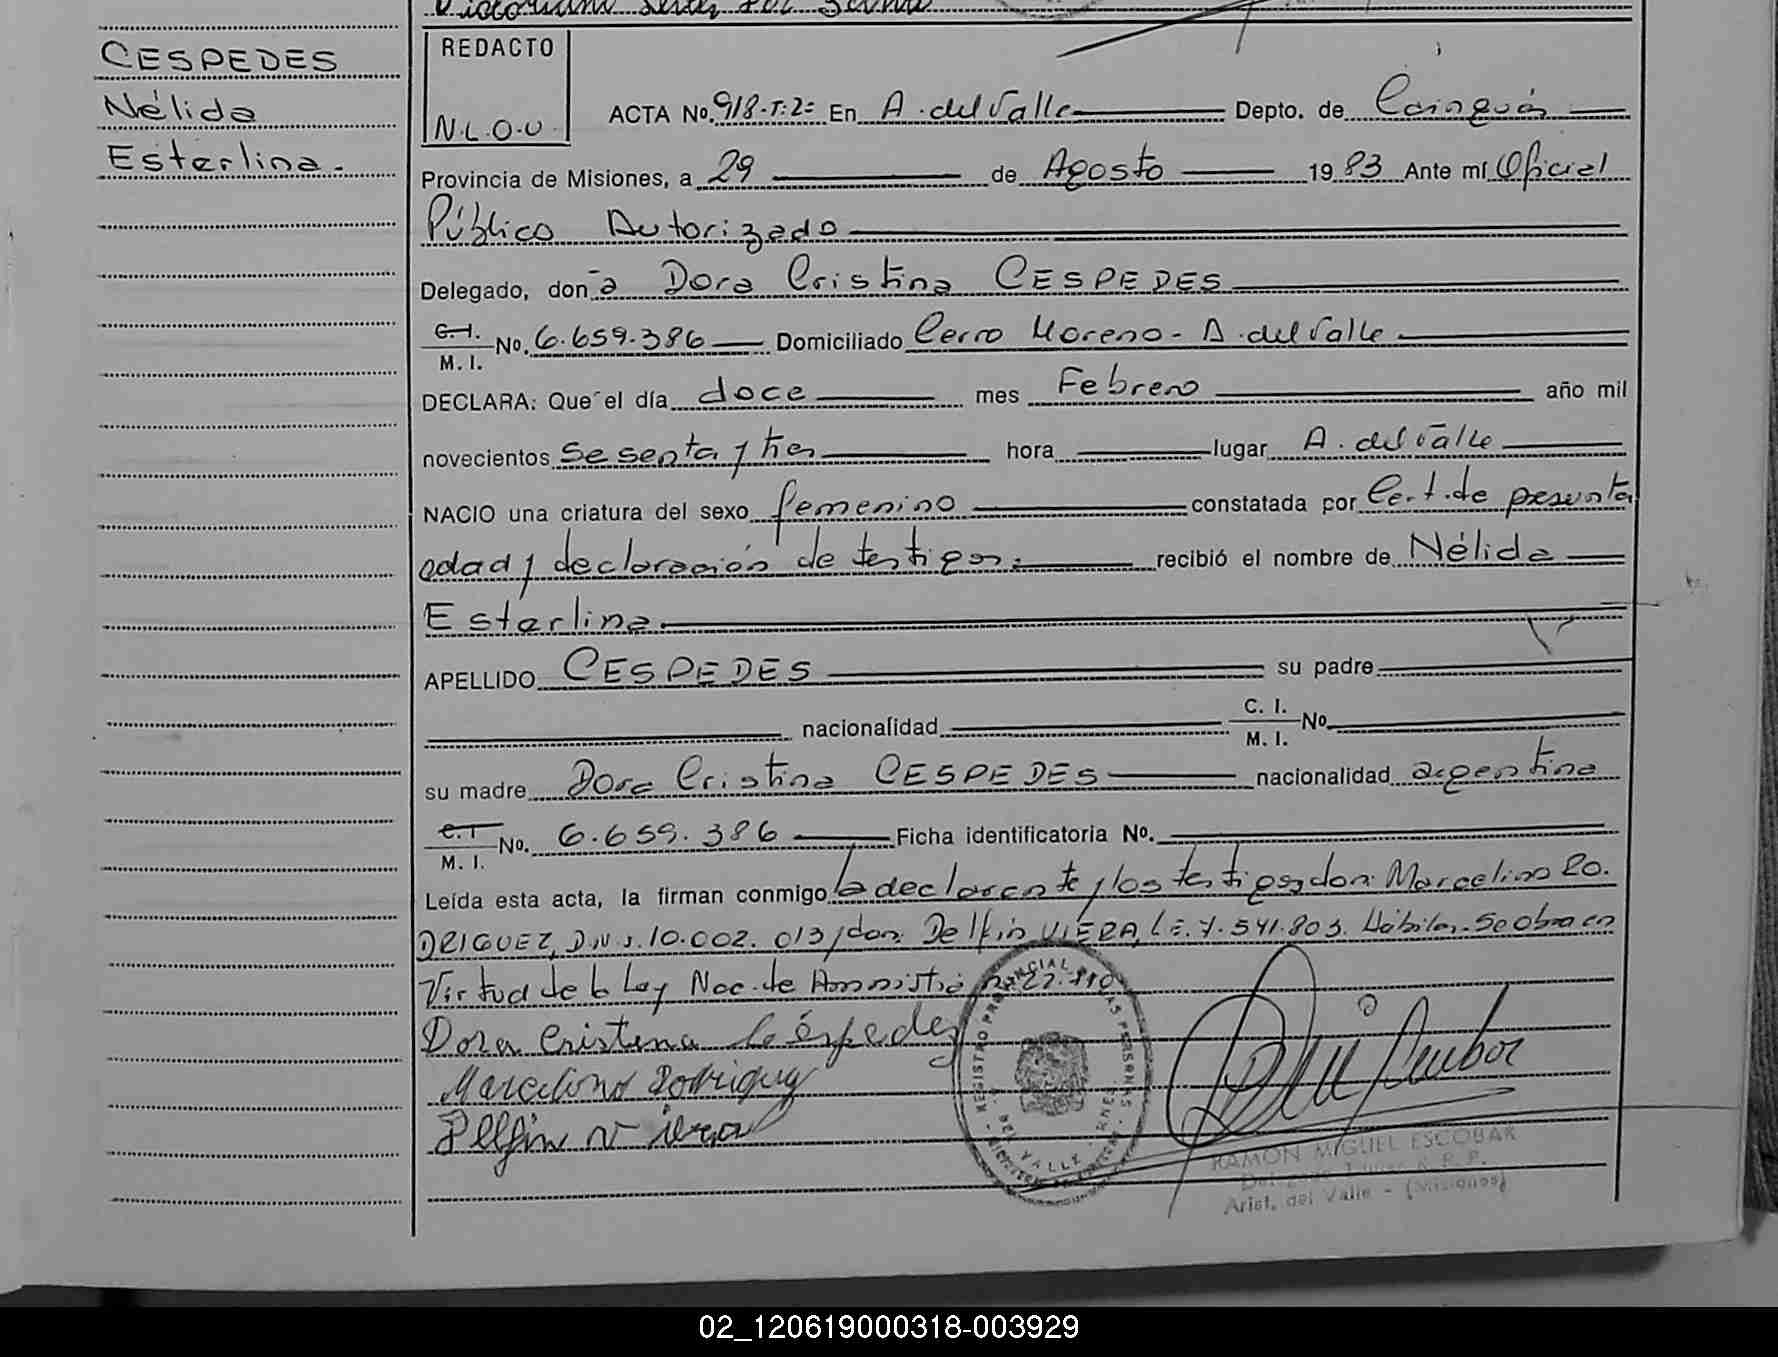 CESPEDES
Nélida
Esterlina.
REDACTO
N.L.O.V.
ACTA No. 918-T:2= En A. del Valle Depto. de Cainguás
Provincia de Misiones, a 29 de Agosto 19 83 Ante mí Oficial
Público Autorizado
Delegado, don ̃a Dora Cristina CESPEDES
C.I.
M. I. No. 6.659.386 Domiciliado Cerro Moreno - A. del Valle
DECLARA: Que el día doce mes Febrero año mil
novecientos sesenta y tres hora lugar A. del Valle
NACIO una criatura del sexo femenino constatada por Cert. de presunta
edad y declaración de testigos. recibió el nombre de Nélida
Esterlina.
APELLIDO CESPEDES su padre
nacionalidad C. I.
M. I. No.
su madre Dora Cristina CESPEDES nacionalidad argentina
C.I
M. I. No. 6.659.386 Ficha identificatoria No.
Leída esta acta, la firman conmigo la declarante y los testigos don: Marcelino RO.
DRIGUEZ, D.N.I. 10.002.013 y don: Delfin VIERA, L.E. 7.541.803. Hábiles. Se obra en
Virtud de la Ley Nac. de Amnistía nº 22.110
Dora Cristina Céspedes
Marcelino Rodriguez
Delfin Viera
REGISTRO PROVINCIAL DE LAS PERSONAS
DEL VALLE
RAMON MIGUEL ESCOBAR
Arist. del Valle - (Misiones)
02_120619000318-003929